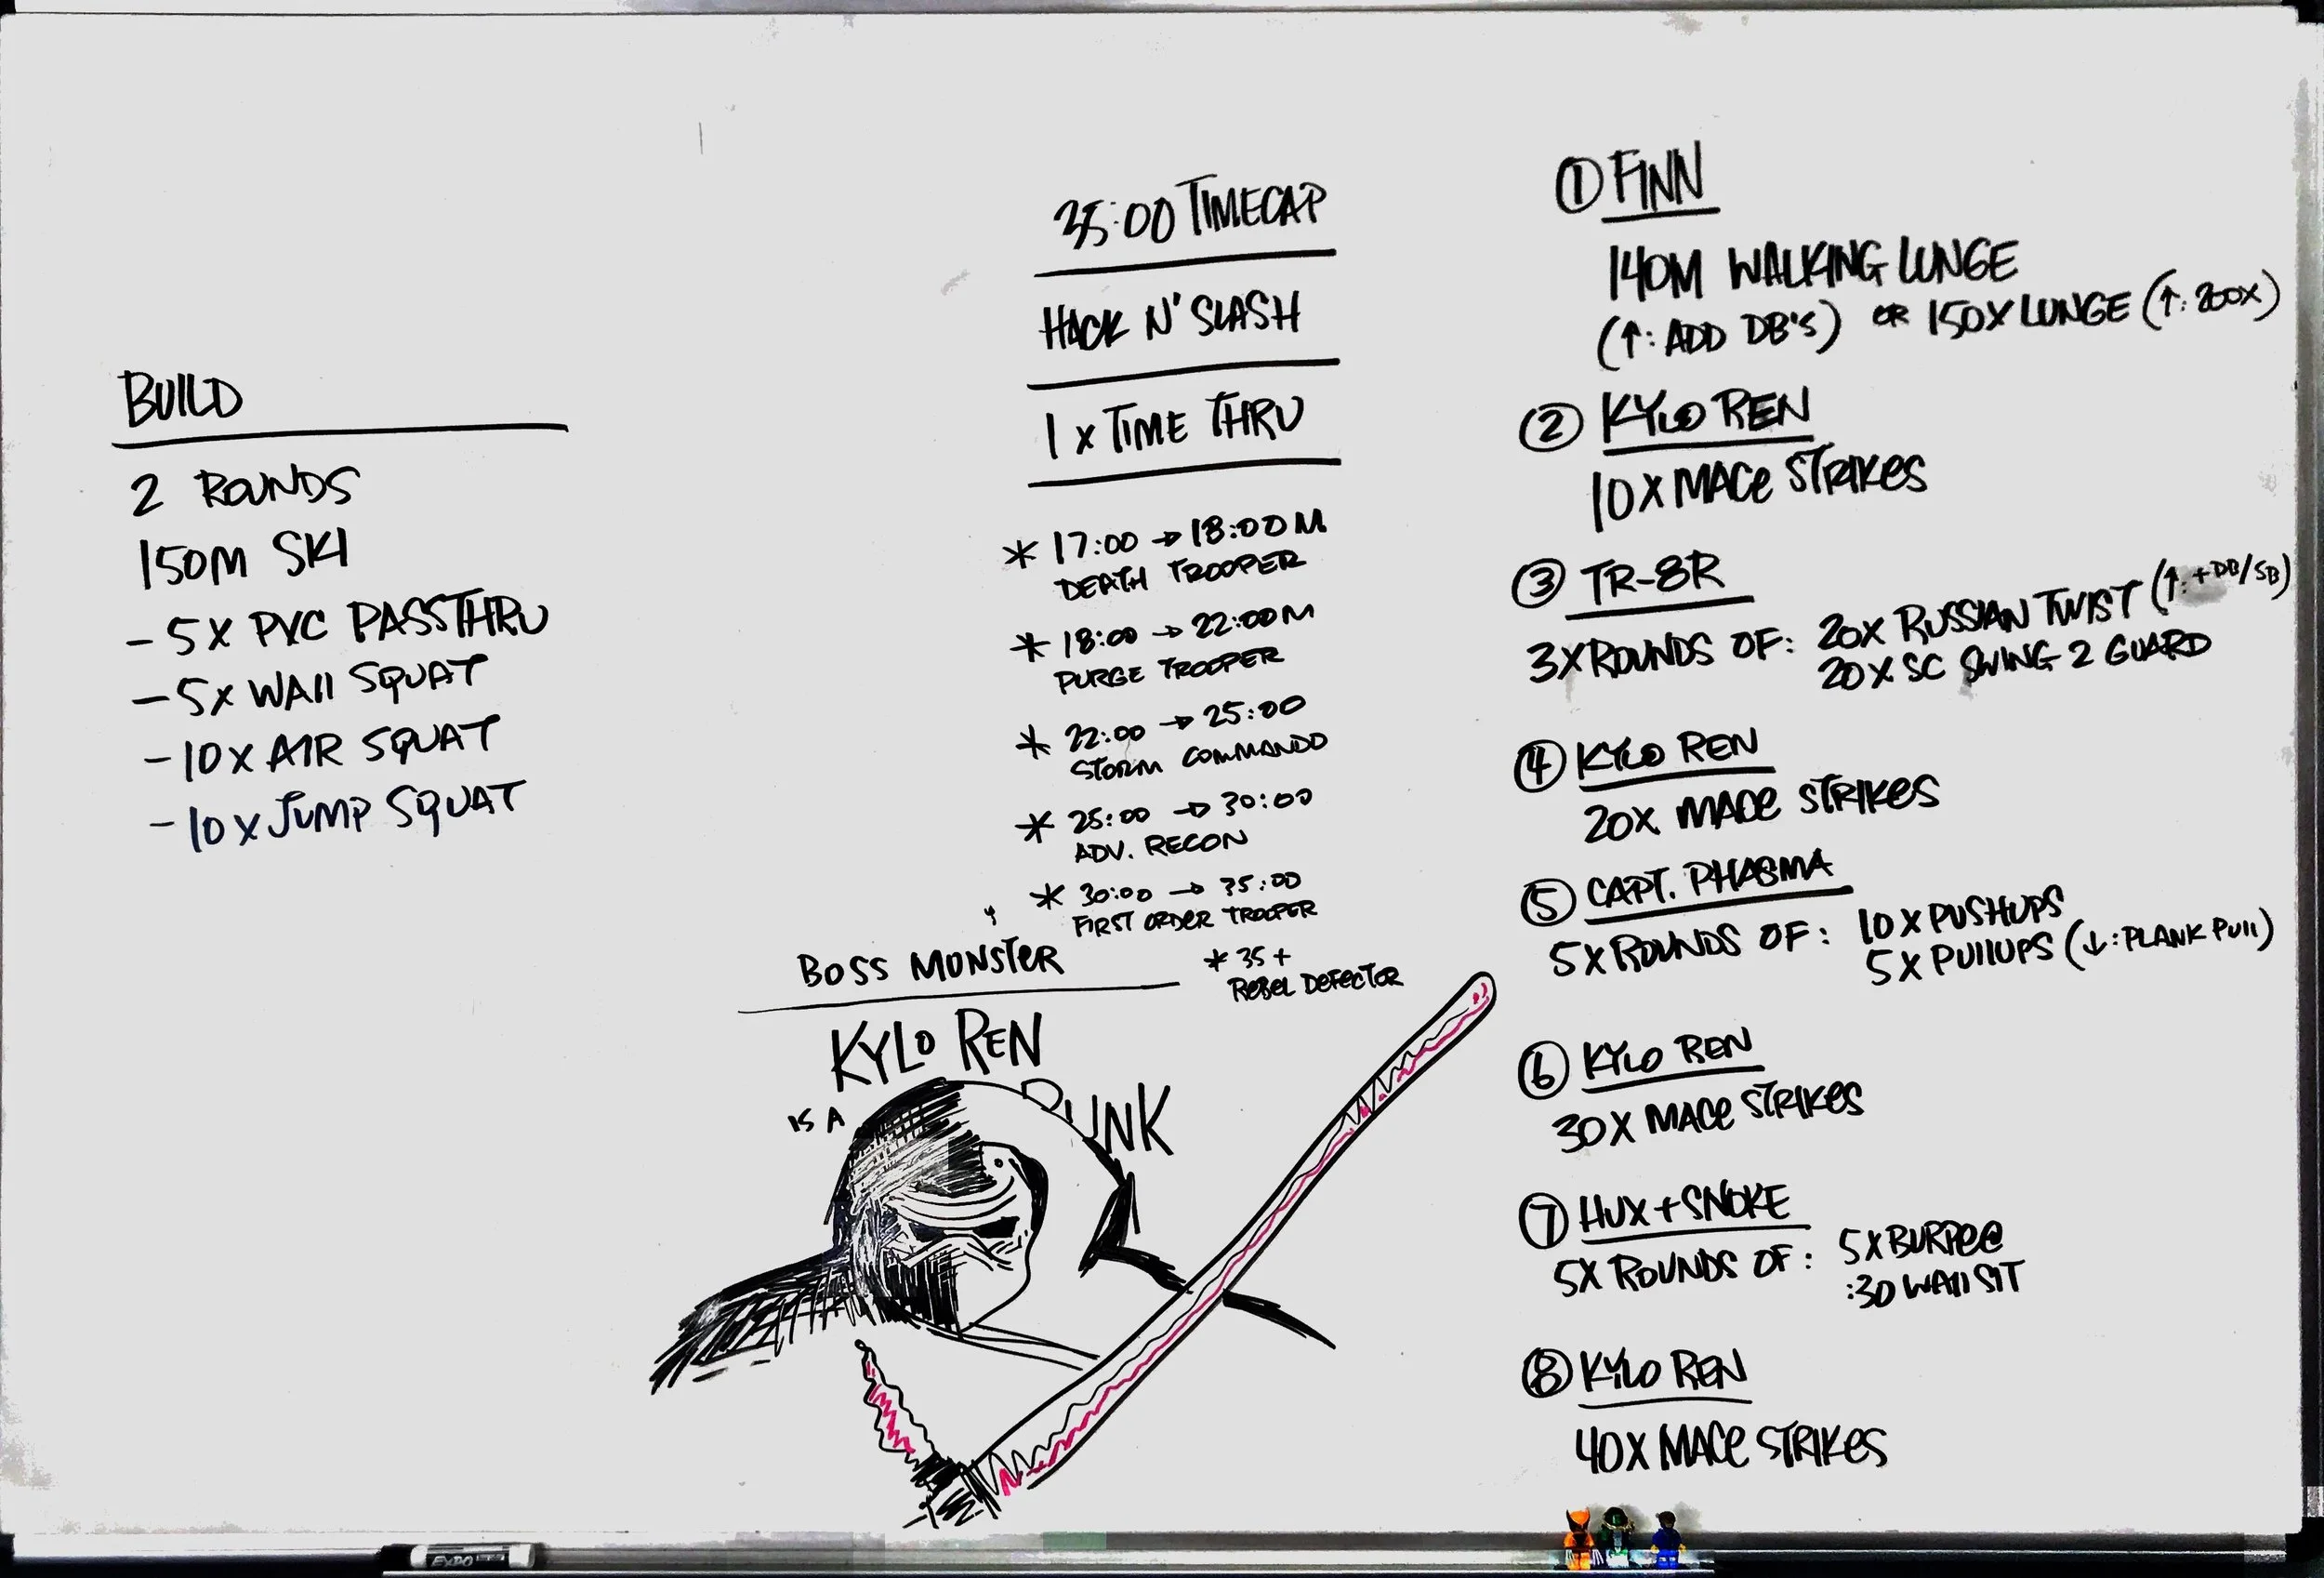 BUILD
2 ROUNDS
150M SKI
- 5X PVC PASSTHRU
- 5X WALL SQUAT
- 10X AIR SQUAT
- 10X JUMP SQUAT
35:00 TIMECAP
HACK N' SLASH
1 X TIME THRU
* 17:00 → 18:00 M
DEATH TROOPER
* 18:00 → 22:00 M
PURGE TROOPER
* 22:00 → 25:00
STORM COMMANDO
* 25:00 → 30:00
ADV. RECON
* 30:00 → 35:00
FIRST ORDER TROOPER
* 35+
REBEL DEFECTOR
BOSS MONSTER
KYLO REN
IS A PUNK
① FINN
140M WALKING LUNGE
(↑: ADD DB'S) OR 150X LUNGE (↑: 200X)
② KYLO REN
10X MACE STRIKES
③ TR-8R
3X ROUNDS OF: 20X RUSSIAN TWIST (↑: +DB/SB)
20X SC SWING 2 GUARD
④ KYLO REN
20X MACE STRIKES
⑤ CAPT. PHASMA
5X ROUNDS OF: 10X PUSHUPS
5X PULLUPS (↓: PLANK PULL)
⑥ KYLO REN
30X MACE STRIKES
⑦ HUX + SNOKE
5X ROUNDS OF: 5X BURPEE
:30 WALL SIT
⑧ KYLO REN
40X MACE STRIKES
EXPO